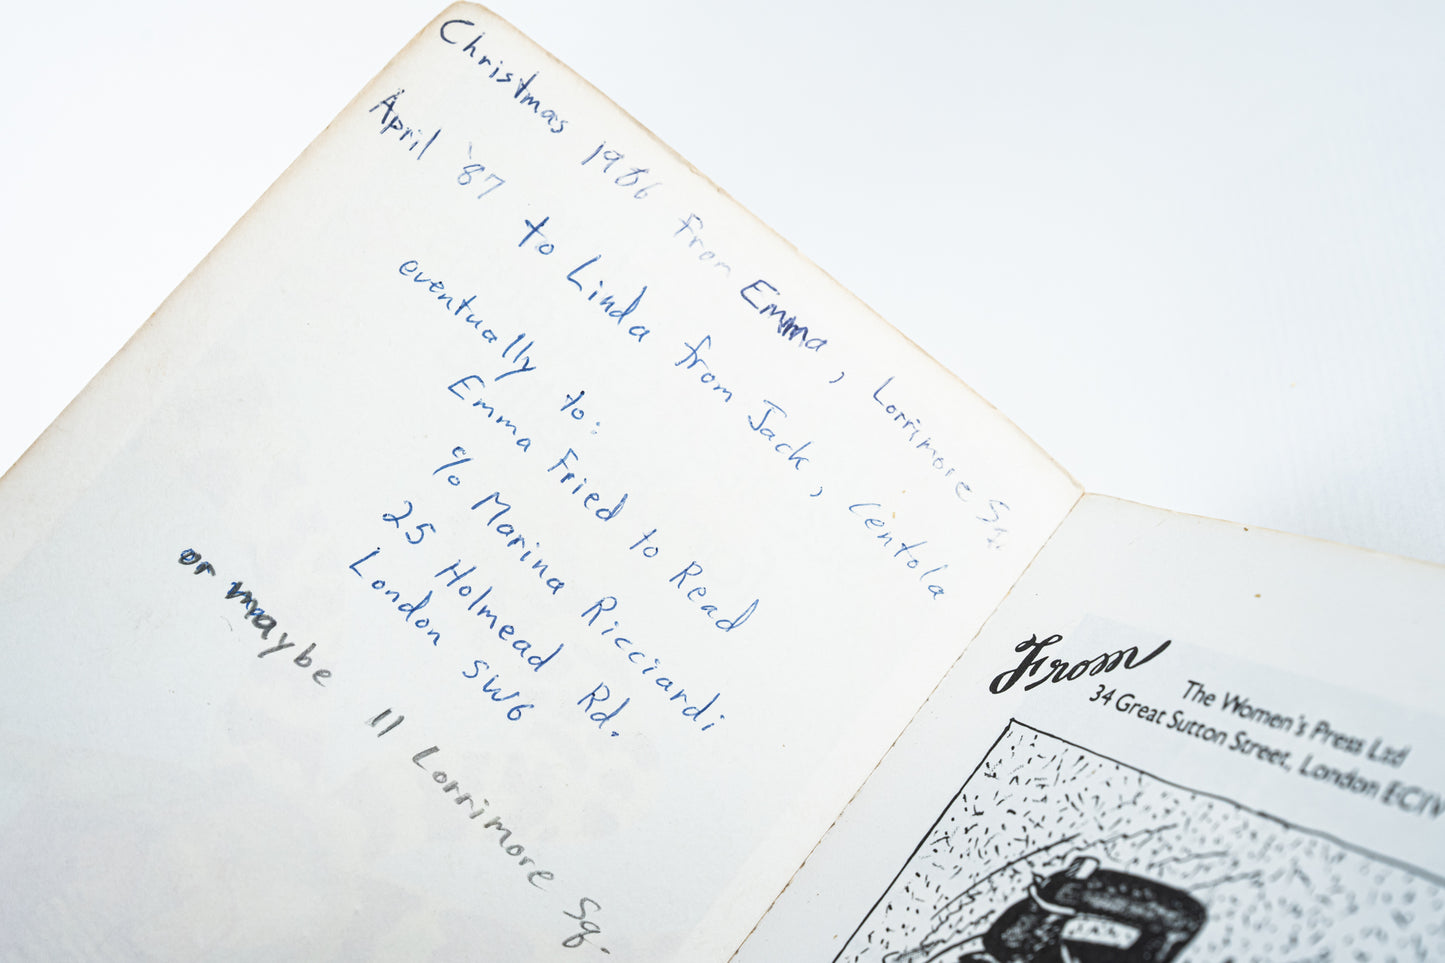 Christmas 1986 from Emma, Lorrimore Sq.
April '87 to Linda from Jack, Centola
eventually to:
Emma Fried to Read
℅ Marina Ricciardi
25 Holmead Rd.
London SW6
or maybe 11 Lorrimore Sq.
From
The Women's Press Ltd
34 Great Sutton Street, London EC1V